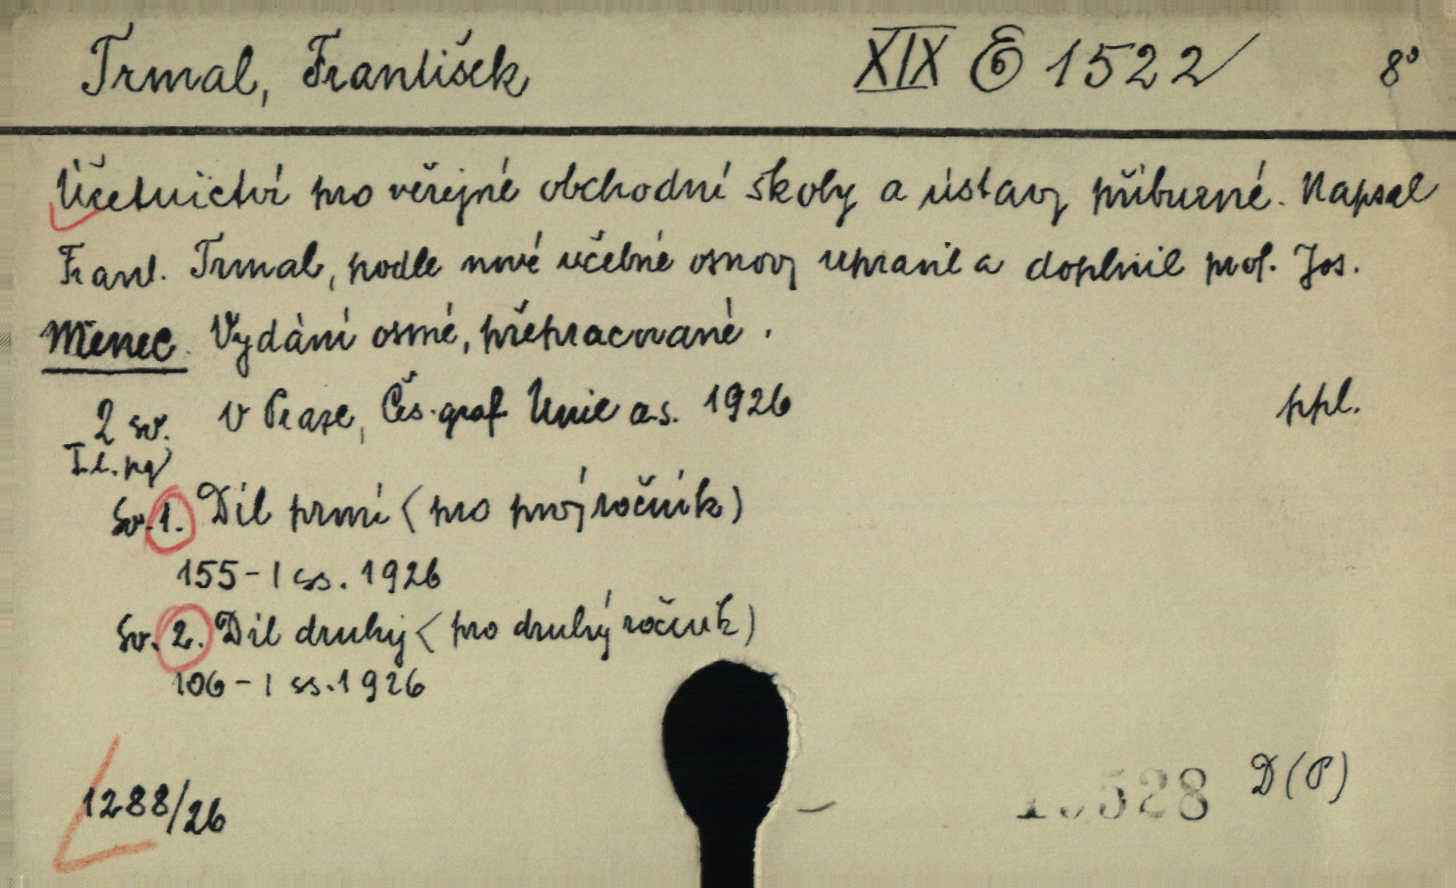 Trmal, František XIX E 1522 8°
Účetnictví pro veřejné obchodní školy a ústavy příbuzné. Napsal
Frant. Trmal, podle nové učebné osnovy upravil a doplnil prof. Jos.
Měnec. Vydání osmé, přepracované.
2 sv. V Praze, Čes. graf Unie a.s. 1926 ppl.
Sv. 1. Díl první (pro prvý ročník)
155-I ss. 1926
Sv. 2. Díl druhý (pro druhý ročník)
106-I ss. 1926
1288/26 528 D(P)